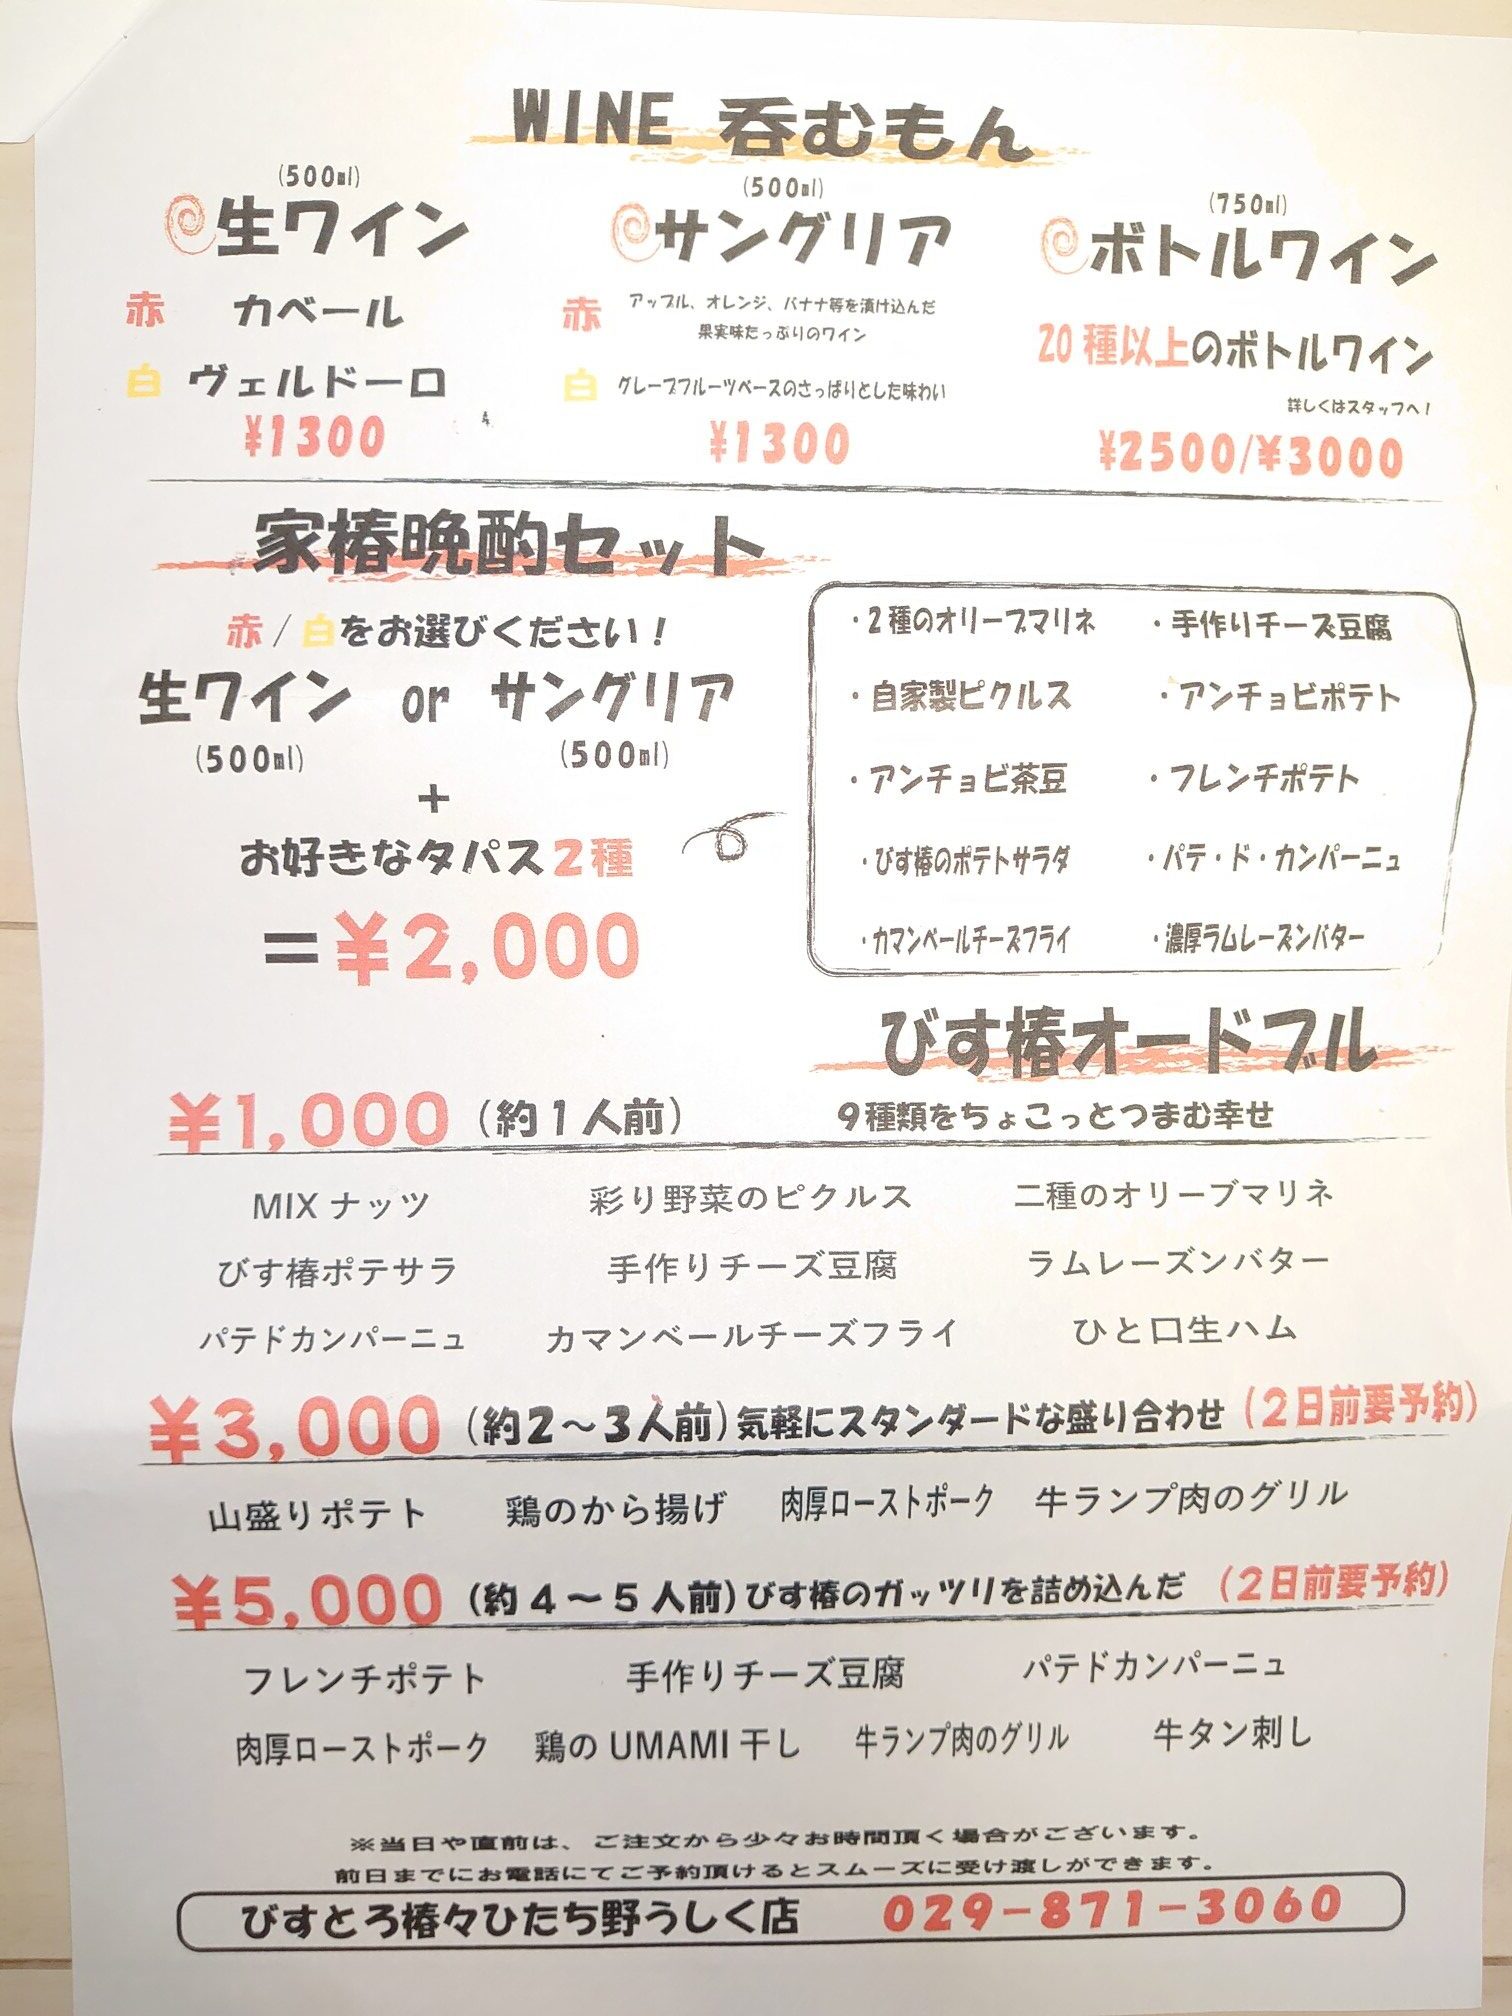 WINE 呑むもん
(500ml)
生ワイン
赤 カベール
白 ヴェルドーロ
¥1300
(500ml)
サングリア
赤 アップル、オレンジ、バナナ等を漬け込んだ
果実味たっぷりのワイン
白 グレープフルーツベースのさっぱりとした味わい
¥1300
(750ml)
ボトルワイン
20種以上のボトルワイン
詳しくはスタッフへ!
¥2500/¥3000
家椿晩酌セット
赤/白をお選びください!
生ワイン or サングリア
(500ml) (500ml)
+
お好きなタパス2種
=¥2,000
・2種のオリーブマリネ ・手作りチーズ豆腐
・自家製ピクルス ・アンチョビポテト
・アンチョビ茶豆 ・フレンチポテト
・びす椿のポテトサラダ ・パテ・ド・カンパーニュ
・カマンベールチーズフライ ・濃厚ラムレーズンバター
びす椿オードブル
¥1,000(約1人前) 9種類をちょこっとつまむ幸せ
MIXナッツ 彩り野菜のピクルス 二種のオリーブマリネ
びす椿ポテサラ 手作りチーズ豆腐 ラムレーズンバター
パテドカンパーニュ カマンベールチーズフライ ひと口生ハム
¥3,000(約2〜3人前)気軽にスタンダードな盛り合わせ(2日前要予約)
山盛りポテト 鶏のから揚げ 肉厚ローストポーク 牛ランプ肉のグリル
¥5,000(約4〜5人前)びす椿のガッツリを詰め込んだ(2日前要予約)
フレンチポテト 手作りチーズ豆腐 パテドカンパーニュ
肉厚ローストポーク 鶏のUMAMI干し 牛ランプ肉のグリル 牛タン刺し
※当日や直前は、ご注文から少々お時間頂く場合がございます。
前日までにお電話にてご予約頂けるとスムーズに受け渡しができます。
びすとろ椿々ひたち野うしく店 029-871-3060